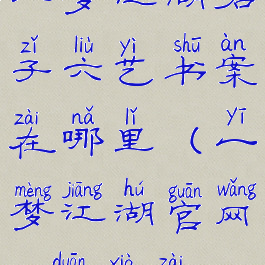 zǐ liù yì shū àn
子六艺书案
zài nǎ lǐ yī
在哪里（一
mèng jiāng hú guān wǎng
梦江湖官网
duān xià zài